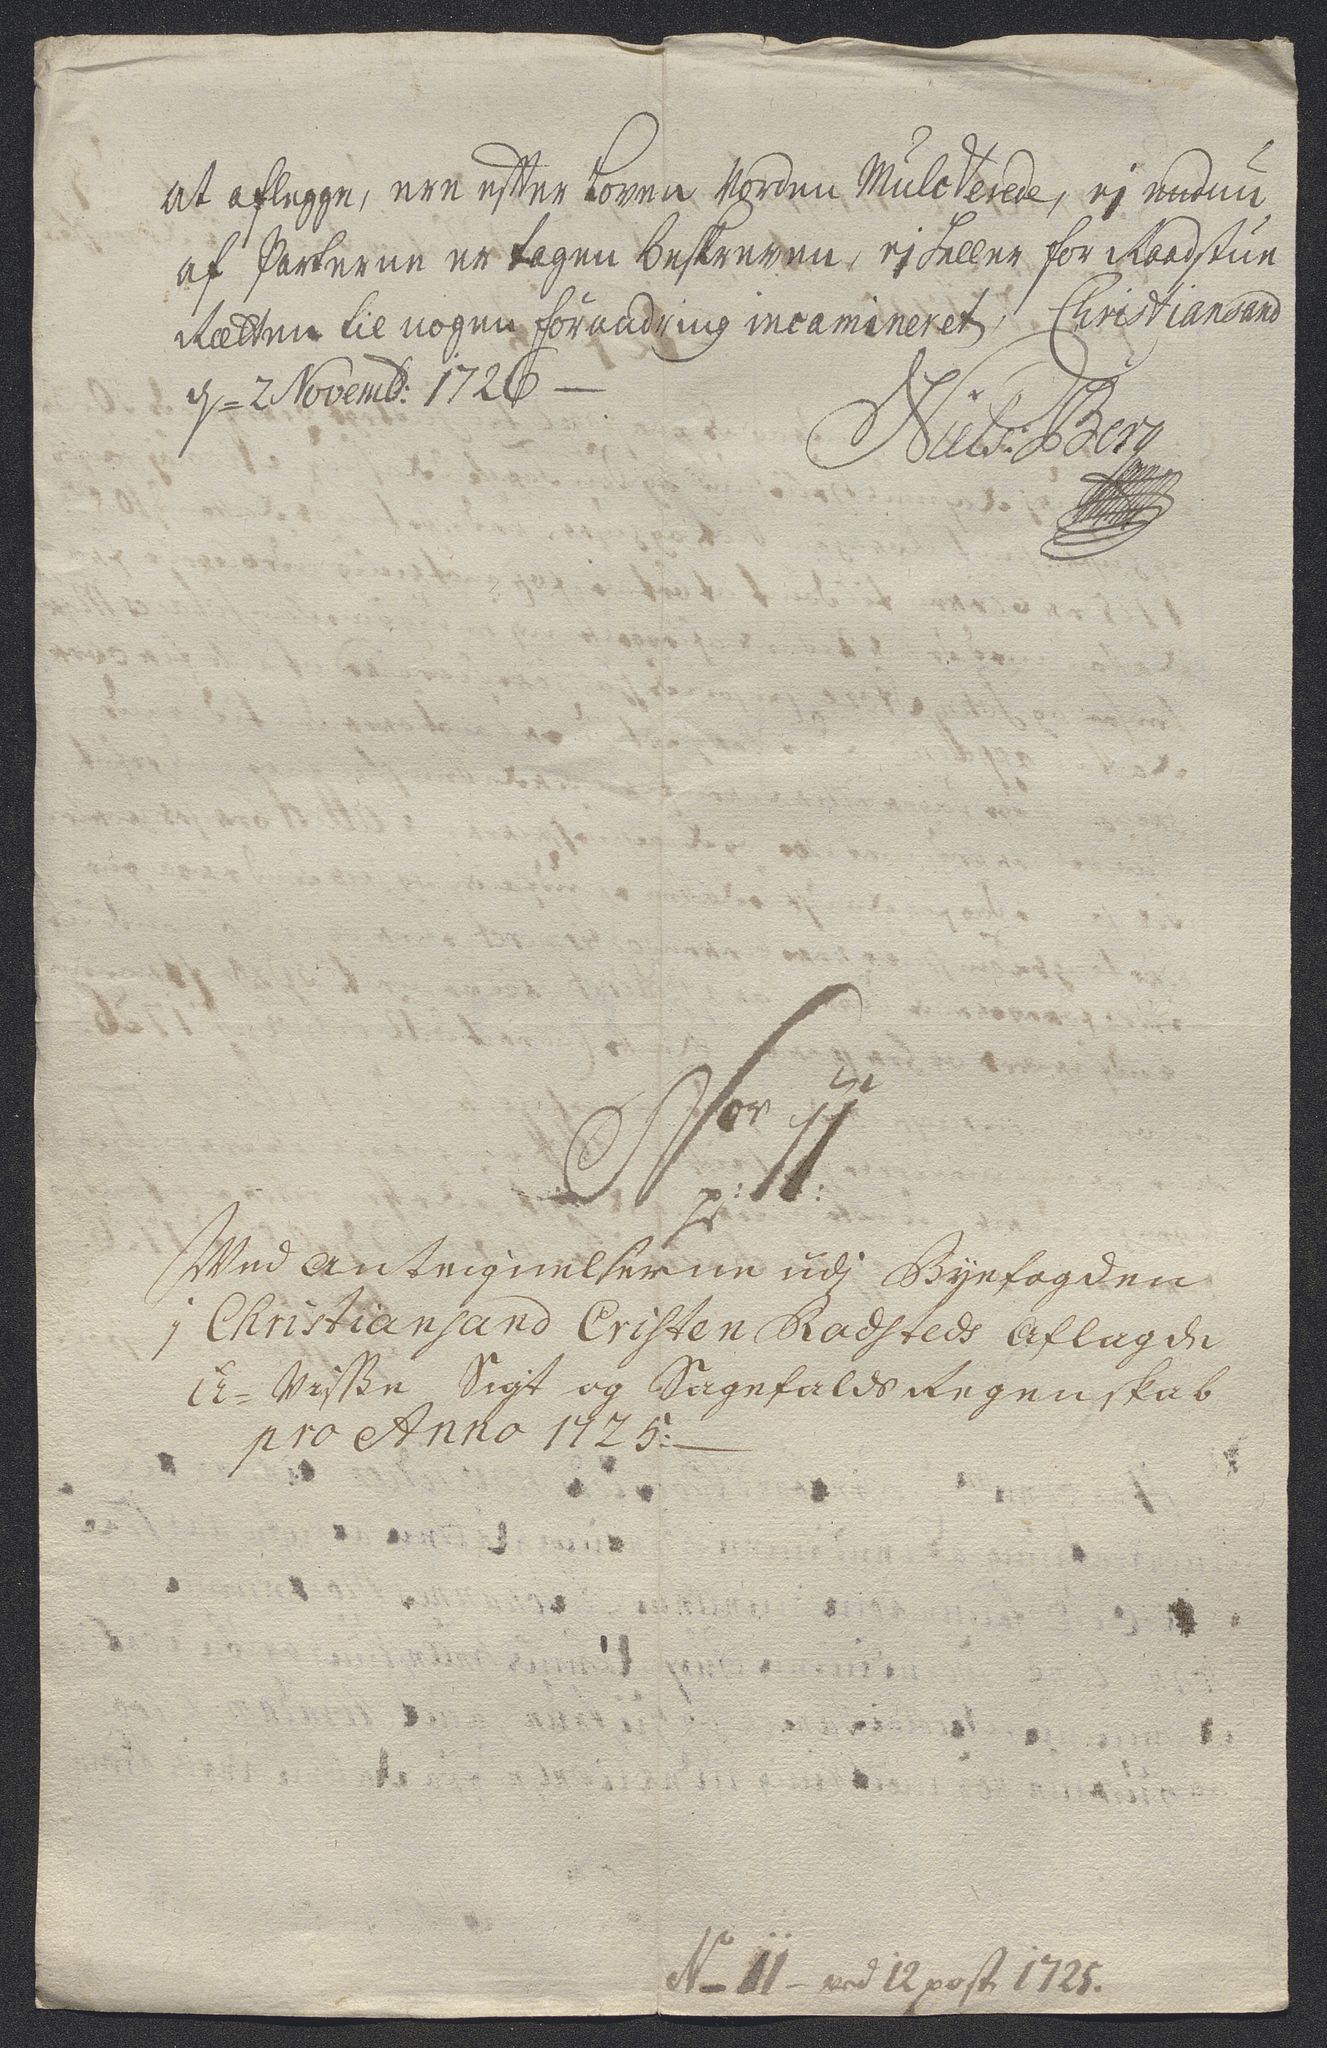 at aflegge, ere efter Loven vorden Mulcterede, ej endnu
af Parterne er tagen beskreven, ej heller for Raadstue
Rætten til nogen forandring incamineret, Christiansand
d= 2 Novemb: 1726 —
Niels Berg
Nor 11
p:
Ved Anteignelserne udj Byefogden
j Christiansand Cristen Rodsteds Aflagde
U= Visse Sigt og Sagefalds Regenskab
pro Anno 1725: —
N 11 – ved 12 post 1725.